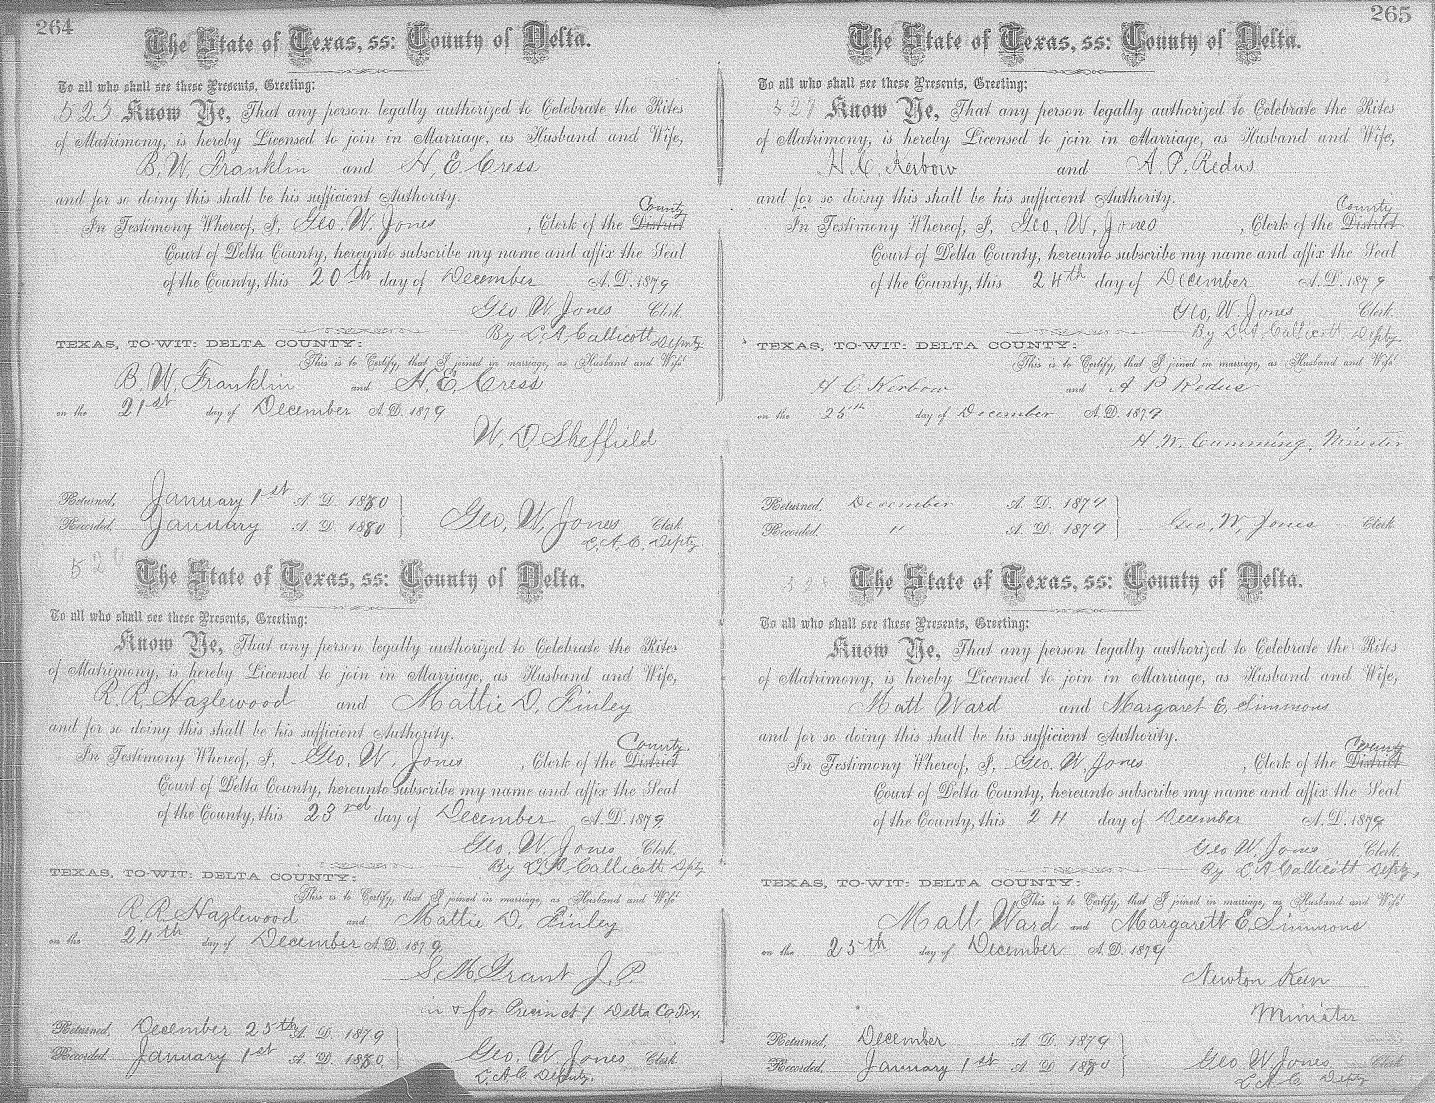 264
The State of Texas, ss: County of Delta.
To all who shall see these Presents, Greeting:
523 Know Ye, That any person legally authorized to Celebrate the Rites
of Matrimony, is hereby Licensed to join in Marriage, as Husband and Wife,
B. W. Franklin and H. E. Cress
and for so doing this shall be his sufficient Authority.
County
In Testimony Whereof, I, Geo. W. Jones, Clerk of the District
Court of Delta County, hereunto subscribe my name and affix the Seal
of the County, this 20th day of December A. D. 1879
Geo W Jones Clerk.
By L. A. Callicott Depty
TEXAS, TO-WIT: DELTA COUNTY:
This is to Certify, that I joined in marriage, as Husband and Wife
B. W. Franklin and H. E. Cress
on the 21st day of December A. D. 1879
W. D. Sheffield
Returned, January 1st A. D. 1880
Recorded, January A. D. 1880
Geo, W, Jones Clerk
L. A. C. Depty
52
The State of Texas, ss: County of Delta.
To all who shall see these Presents, Greeting:
Know Ye, That any person legally authorized to Celebrate the Rites
of Matrimony, is hereby Licensed to join in Marriage, as Husband and Wife,
R. R. Hazlewood and Mattie D. Finley
and for so doing this shall be his sufficient Authority.
County
In Testimony Whereof, I, Geo. W. Jones, Clerk of the District
Court of Delta County, hereunto subscribe my name and affix the Seal
of the County, this 23rd day of December A. D. 1879
Geo. W Jones Clerk.
By L A Callicott Depty
TEXAS, TO-WIT: DELTA COUNTY:
This is to Certify, that I joined in marriage, as Husband and Wife
R. R. Hazlewood and Mattie D. Finley
on the 24th day of December A. D. 1879
S. M. Grant J. P.
in & for Precinct 1 Delta Co
Returned, December 25th A. D. 1879
Recorded, January 1st A. D. 1880
Geo. W. Jones Clerk
L. A. C. Deputy.
265
The State of Texas, ss: County of Delta.
To all who shall see these Presents, Greeting:
527 Know Ye, That any person legally authorized to Celebrate the Rites
of Matrimony, is hereby Licensed to join in Marriage, as Husband and Wife,
H. C. Kerbow and A. P. Redus
and for so doing this shall be his sufficient Authority.
County
In Testimony Whereof, I, Geo, W, Jones, Clerk of the District
Court of Delta County, hereunto subscribe my name and affix the Seal
of the County, this 24th day of December A. D. 1879
Geo, W, Jones Clerk.
By L. A. Callicott Depty
TEXAS, TO-WIT: DELTA COUNTY:
This is to Certify, that I joined in marriage, as Husband and Wife
H C Kerbow and A P Redus
on the 25th day of December A. D. 1879
H. W. Cumming, Minister
Returned, December A. D. 1879
Recorded, " A. D. 1879
Geo, W, Jones Clerk
The State of Texas, ss: County of Delta.
To all who shall see these Presents, Greeting:
Know Ye, That any person legally authorized to Celebrate the Rites
of Matrimony, is hereby Licensed to join in Marriage, as Husband and Wife,
Matt Ward and Margaret E. Simmons
and for so doing this shall be his sufficient Authority.
County
In Testimony Whereof, I, Geo. W. Jones, Clerk of the District
Court of Delta County, hereunto subscribe my name and affix the Seal
of the County, this 24 day of December A. D. 1879
Geo W Jones Clerk.
By L A Callicott Depty,
TEXAS, TO-WIT: DELTA COUNTY:
This is to Certify, that I joined in marriage, as Husband and Wife
Matt Ward and Margarett E. Simmons
on the 25th day of December A. D. 1879
Newton Keen
Minister
Returned, December A. D. 1879
Recorded, January 1st A. D. 1880
Geo W. Jones Clerk
L A C Depty